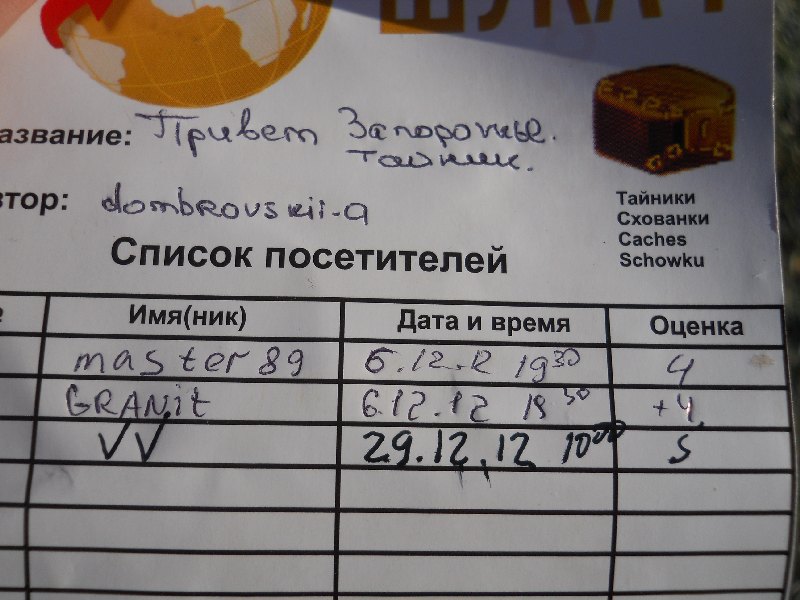 ШУКАЧ
азвание: Привет Запорожье.
тайник.
втор: dombrovskii-a
Тайники
Схованки
Caches
Schowku
Список посетителей
Имя(ник) Дата и время Оценка
master89 6.12.12 19 30 4
GRANit 6.12.12 19 30 +4
VV 29.12.12 10 00 5